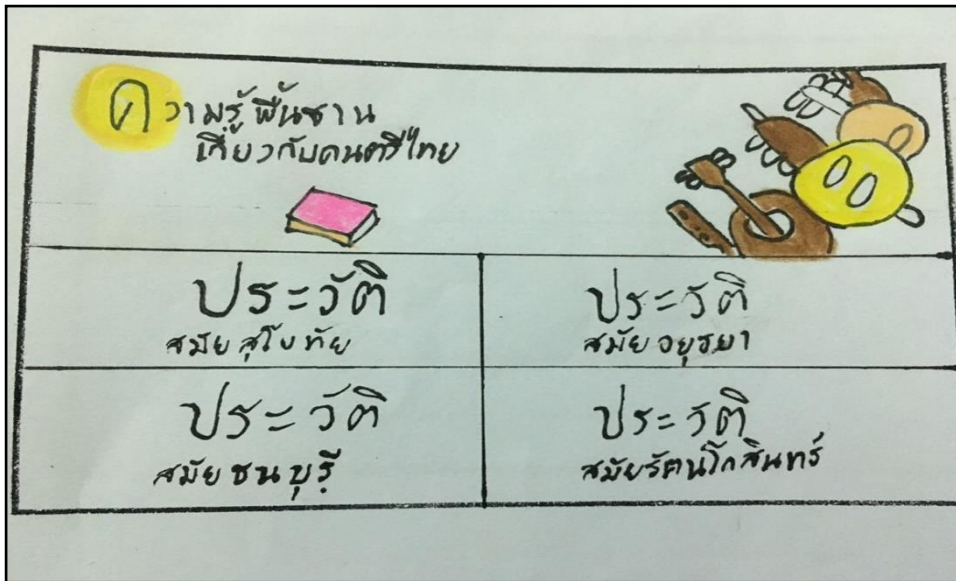 ความรู้พื้นฐาน
เกี่ยวกับดนตรีไทย
ประวัติ
สมัยสุโขทัย
ประวัติ
สมัยอยุธยา
ประวัติ
สมัยธนบุรี
ประวัติ
สมัยรัตนโกสินทร์